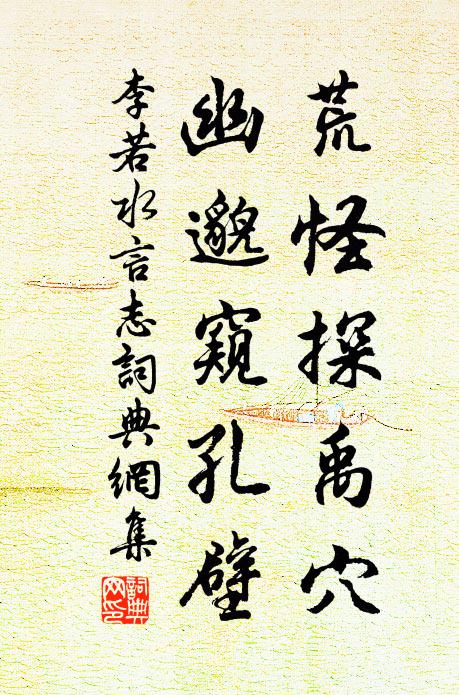 荒怪探禹穴
幽邈窺孔壁
李若水言志詞典網集
詞典網印